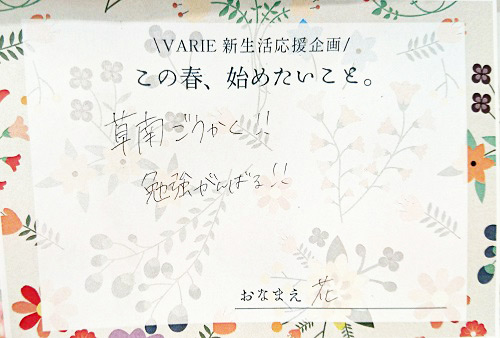 \VARIE 新生活応援企画/
この春、始めたいこと。
草南ごうかく!!
勉強がんばる!!
おなまえ 花